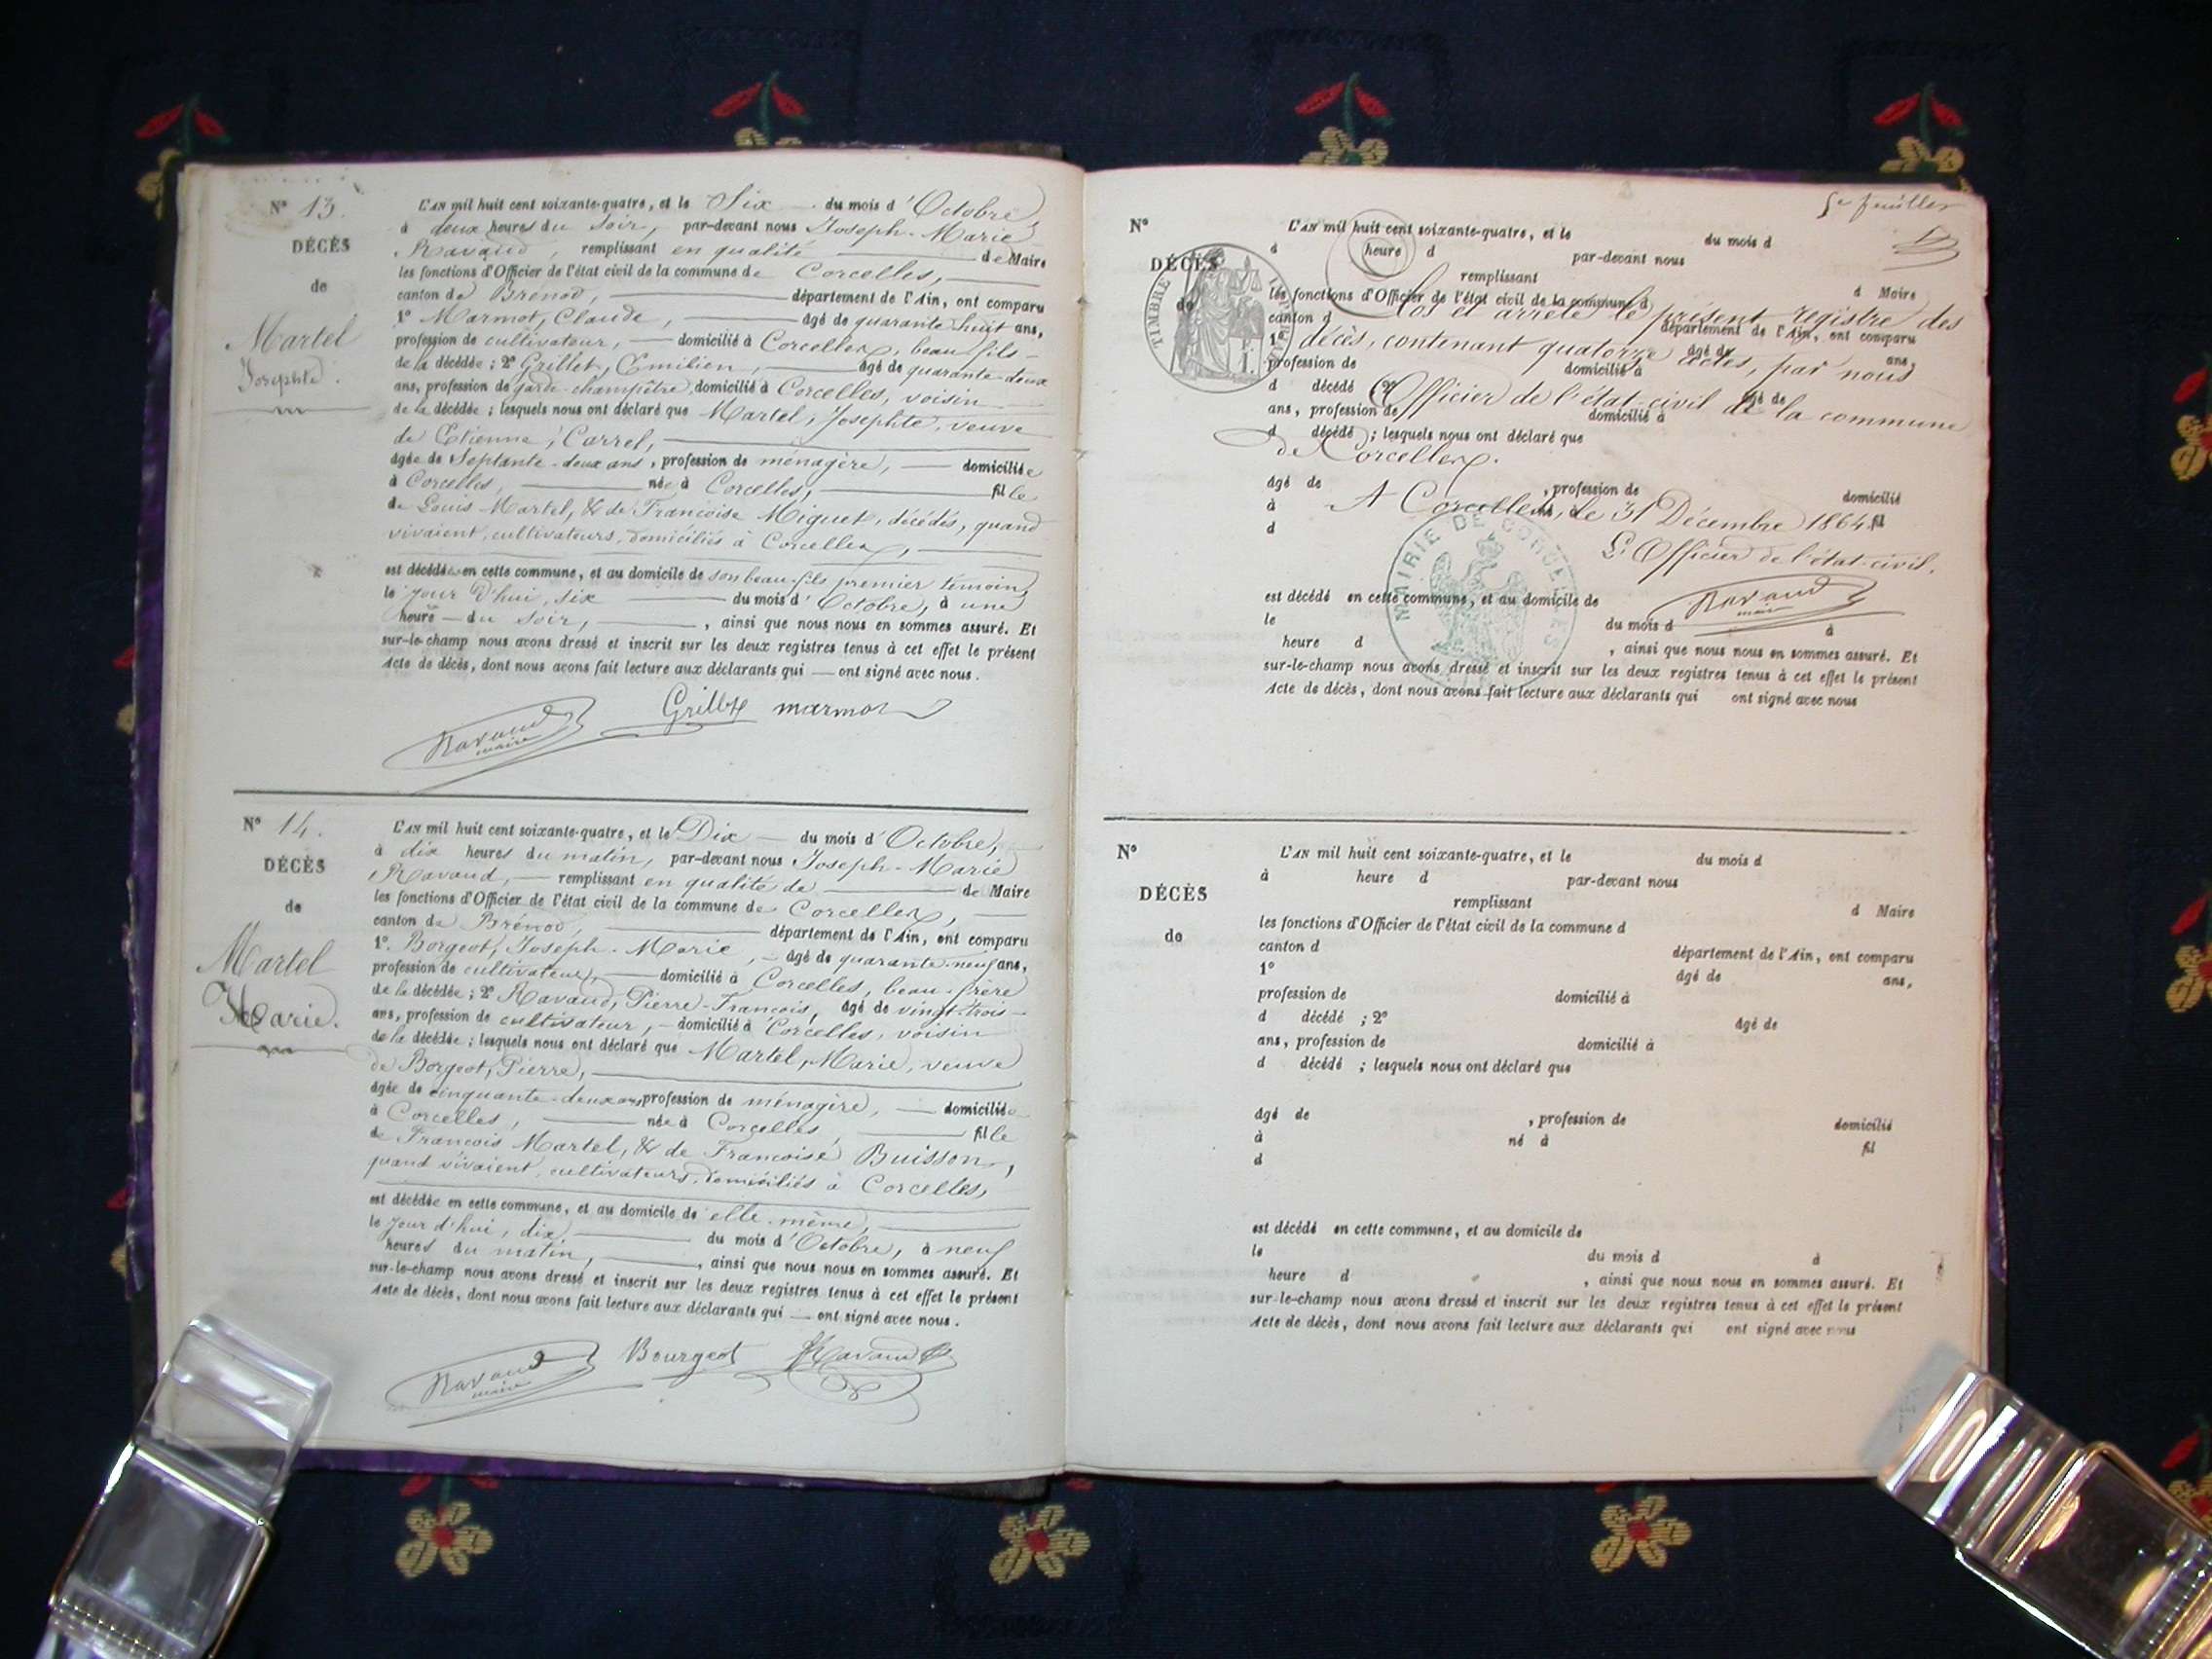 N° 13.
DÉCÈS
de
Martel
Josephte.
L'AN mil huit cent soixante-quatre, et le Six du mois d'Octobre
à deux heures du Soir, par-devant nous Joseph-Marie
Ravaud, remplissant en qualité de Maire
les fonctions d'Officier de l'état civil de la commune de Corcelles,
canton de Brénod, département de l'Ain, ont comparu
1° Marmot, Claude, âgé de quarante huit ans,
profession de cultivateur, domicilié à Corcelles, beau-fils
de la décédée ; 2° Grillet, Emilien, âgé de quarante-deux
ans, profession de garde-champêtre, domicilié à Corcelles, voisin
de la décédée ; lesquels nous ont déclaré que Martel, Josephte, veuve
de Etienne, Carrel,
âgée de Septante-deux ans, profession de ménagère, domiciliée
à Corcelles, née à Corcelles, fille
de Louis Martel, & de Francoise Miguet, décédés, quand
vivaient, cultivateurs, domiciliés à Corcelles,
est décédée en cette commune, et au domicile de son beau-fils premier témoin,
le jour d'hui, six du mois d'Octobre, à une
heure du Soir, , ainsi que nous nous en sommes assuré. Et
sur-le-champ nous avons dressé et inscrit sur les deux registres tenus à cet effet le présent
Acte de décès, dont nous avons fait lecture aux déclarants qui ont signé avec nous.
Grillet marmot
Ravaud
maire
N° 14.
DÉCÈS
de
Martel
Marie.
L'AN mil huit cent soixante-quatre, et le Dix du mois d'Octobre,
à dix heures du matin, par-devant nous Joseph-Marie
Ravaud, remplissant en qualité de de Maire
les fonctions d'Officier de l'état civil de la commune de Corcelles,
canton de Brénod, département de l'Ain, ont comparu
1°. Borgeot, Joseph-Marie, âgé de quarante-neuf ans,
profession de cultivateur, domicilié à Corcelles, beau-frère
de la décédée ; 2° Ravaud, Pierre-Francois, âgé de vingt-trois
ans, profession de cultivateur, domicilié à Corcelles, voisin
de la décédée ; lesquels nous ont déclaré que Martel, Marie, veuve
de Borgeot, Pierre,
âgée de cinquante-deux ans, profession de ménagère, domiciliée
à Corcelles, née à Corcelles, fille
de Francois Martel, & de Francoise Buisson,
quand vivaient, cultivateurs, domiciliés à Corcelles,
est décédée en cette commune, et au domicile de elle-même,
le jour d'hui, dix du mois d'Octobre, à neuf
heures du matin, , ainsi que nous nous en sommes assuré. Et
sur-le-champ nous avons dressé et inscrit sur les deux registres tenus à cet effet le présent
Acte de décès, dont nous avons fait lecture aux déclarants qui ont signé avec nous.
Ravaud
maire
Bourgeot Ravaud
5e feuillet
N°
DÉCÈS
de
TIMBRE IMPERIAL
L'AN mil huit cent soixante-quatre, et le du mois d
à heure d par-devant nous
remplissant d Maire
les fonctions d'Officier de l'état civil de la commune d
Clos et arrêté le présent registre des
canton d département de l'Ain, ont comparu
1° âgé de ans,
décès, contenant quatorze actes, par nous
profession de domicilié à
d décédé ; 2° âgé de
Officier de l'état-civil de la commune
ans, profession de domicilié à
d décédé ; lesquels nous ont déclaré que
de Corcelles.
âgé de , profession de domicilié
à né à fil
A Corcelles, le 31 Décembre 1864.
d
L'Officier de l'état-civil.
MAIRIE DE CORCELLES
Ravaud
maire
est décédé en cette commune, et au domicile de
le du mois d à
heure d , ainsi que nous nous en sommes assuré. Et
sur-le-champ nous avons dressé et inscrit sur les deux registres tenus à cet effet le présent
Acte de décès, dont nous avons fait lecture aux déclarants qui ont signé avec nous
N°
DÉCÈS
de
L'AN mil huit cent soixante-quatre, et le du mois d
à heure d par-devant nous
remplissant d Maire
les fonctions d'Officier de l'état civil de la commune d
canton d département de l'Ain, ont comparu
1° âgé de ans,
profession de domicilié à
d décédé ; 2° âgé de
ans, profession de domicilié à
d décédé ; lesquels nous ont déclaré que
âgé de , profession de domicilié
à né à fil
d
est décédé en cette commune, et au domicile de
le du mois d à
heure d , ainsi que nous nous en sommes assuré. Et
sur-le-champ nous avons dressé et inscrit sur les deux registres tenus à cet effet le présent
Acte de décès, dont nous avons fait lecture aux déclarants qui ont signé avec nous